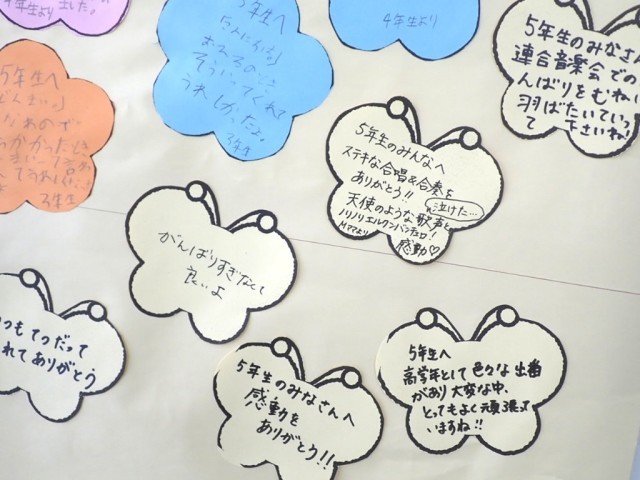 年生より
ました。
5年生へ
おえるのとき
そういってくれて
うれしかったよ。
3年生
4年生より
5年生のみなさん
連合音楽会での
んばりをむねに
羽ばたいていっ
て下さいね!
5年生へ
3年生
5年生のみんなへ
ステキな合唱&合奏を
ありがとう!!
泣けた…
天使のような歌声と
ノリノリエルクンバンチェロ!
Mママより
感動♡
がんばりすぎなくて
良いよ
つもてつだって
れてありがとう
5年生のみなさんへ
感動を
ありがとう!!
5年生へ
高学年として色々な出番
があり大変な中、
とってもよく頑張って
いますね!!